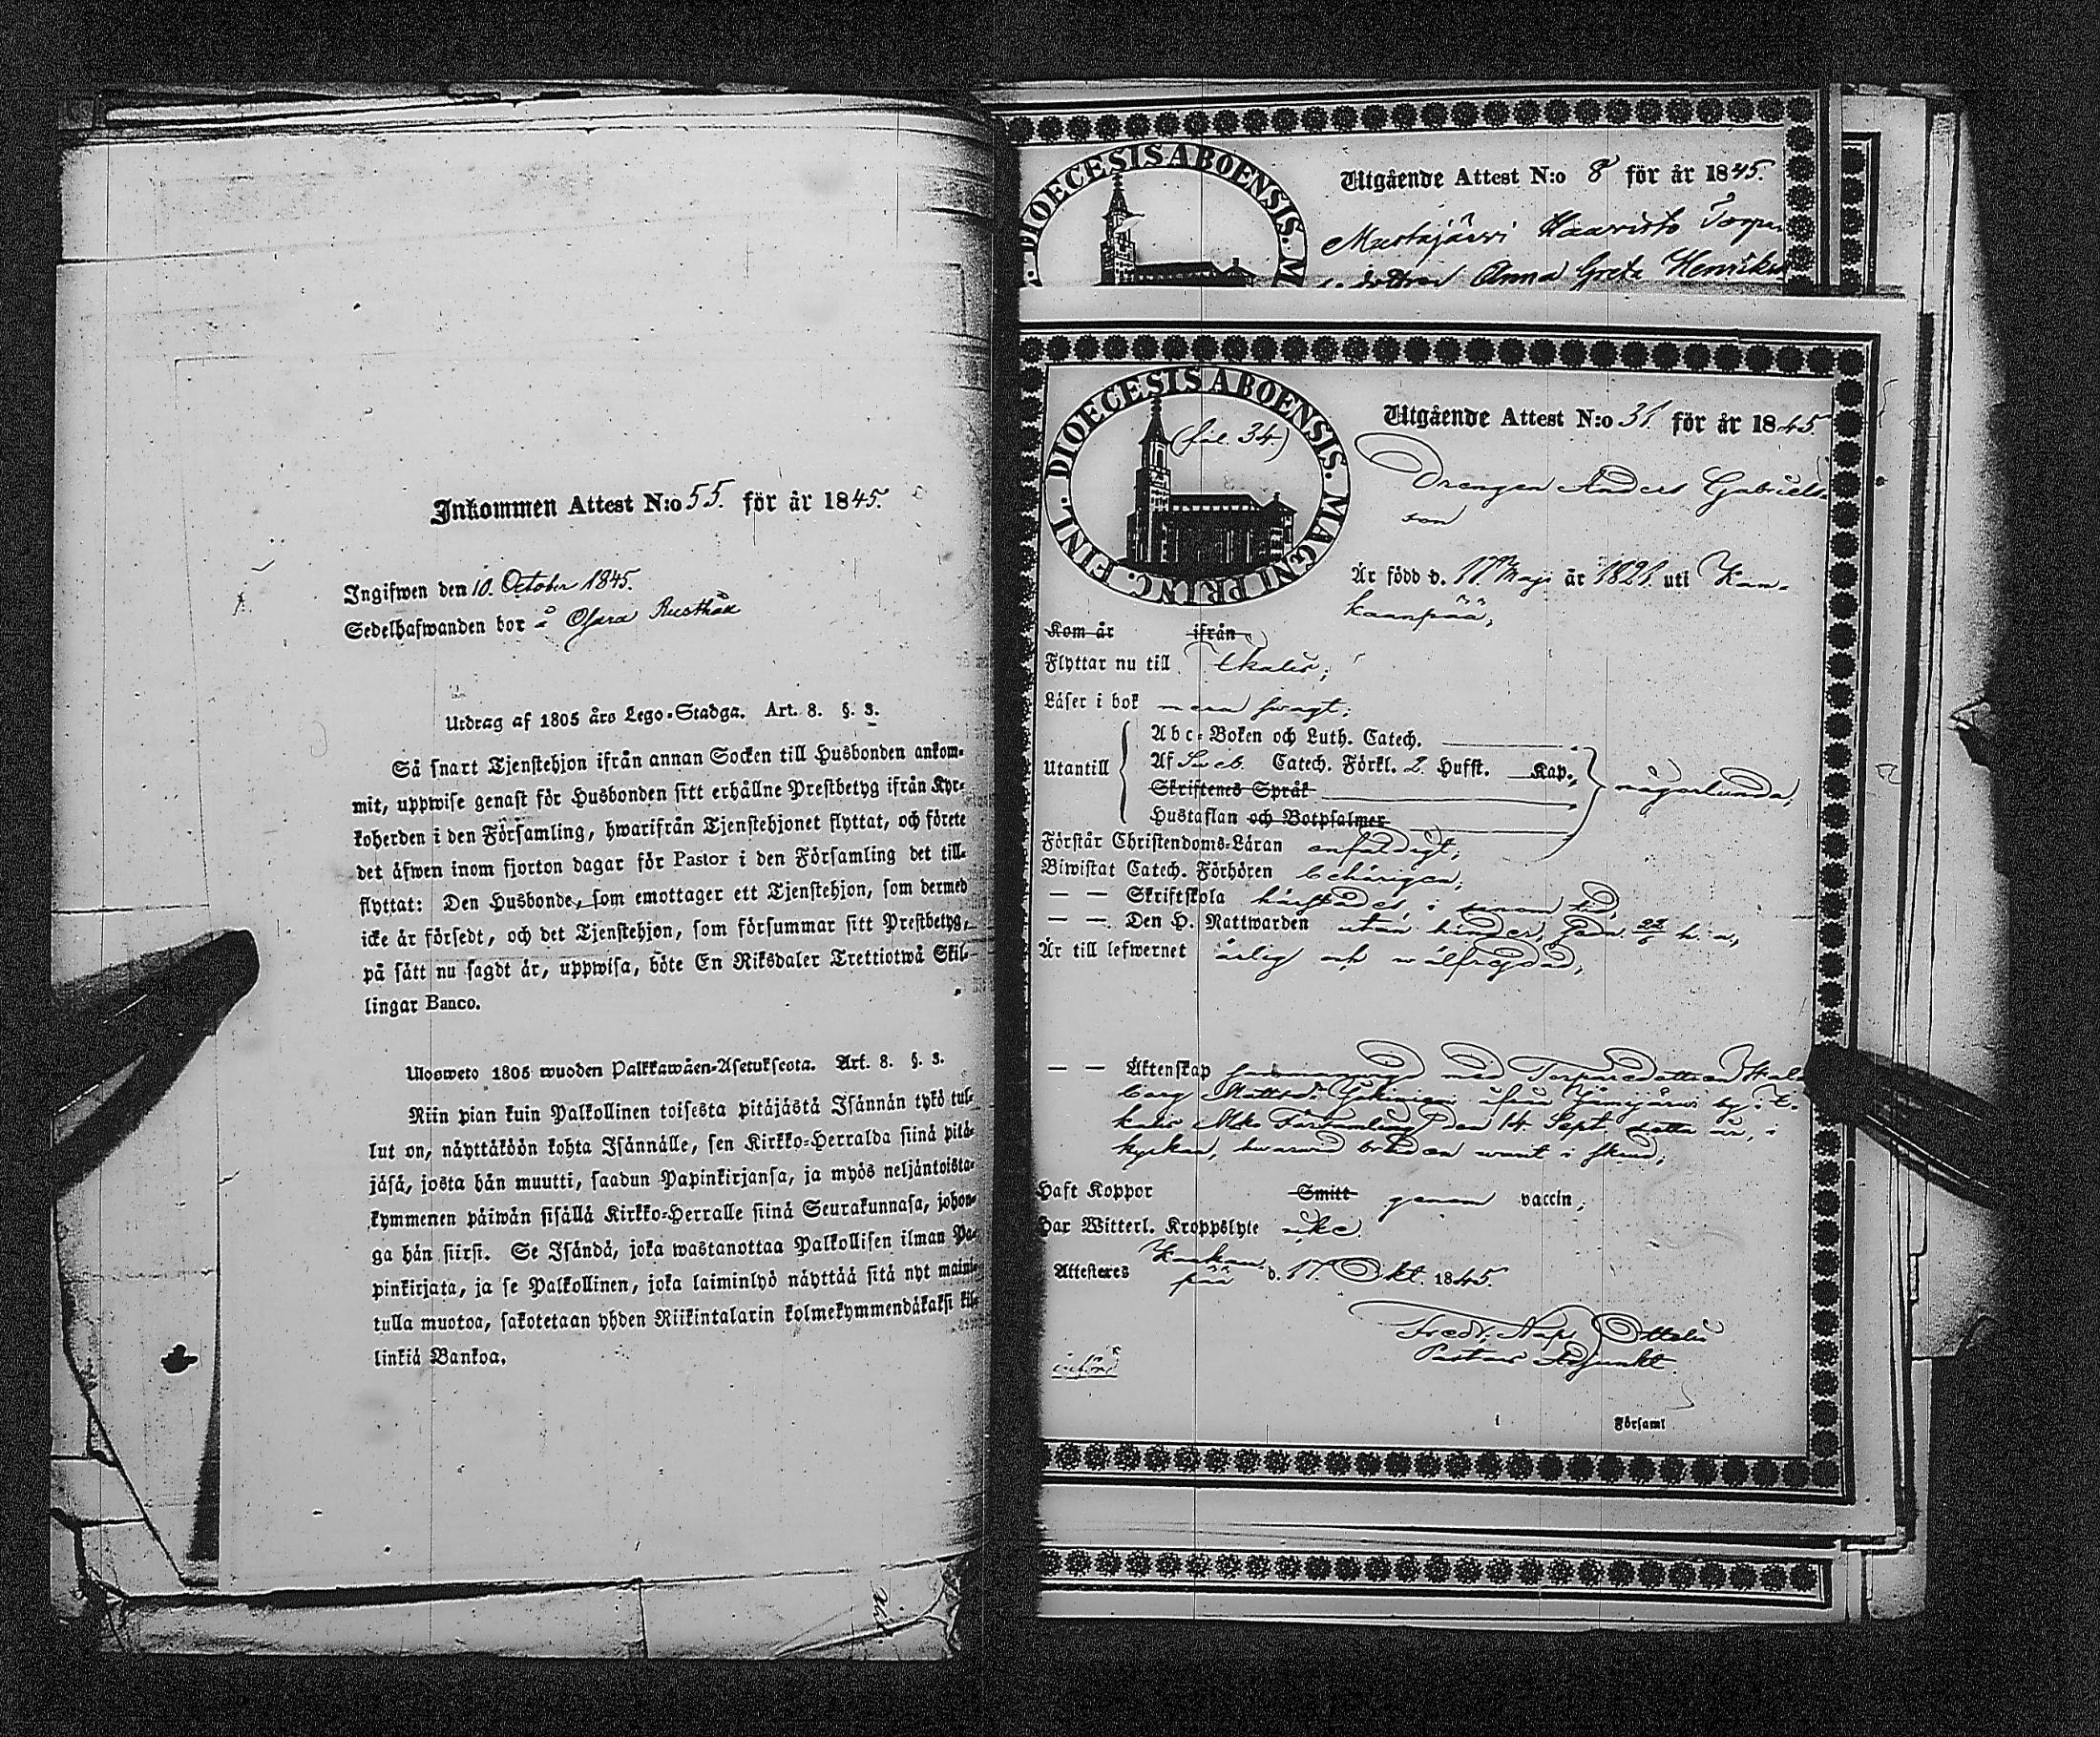 Inkommen Attest N:o 55. för år 1845.
Ingifwen den 10. October 1845.
Sedelhafwanden bor å Osara Rusthåll
Utdrag af 1805 års Lego-Stadga. Art. 8. §. 3.
Så snart Tjenstehjon ifrån annan Socken till Husbonden ankom-
mit, uppwise genast för Husbonden sitt erhållne Prestbetyg ifrån Kyr-
koherden i den Församling, hwarifrån Tjenstehjonet flyttat, och förete
det äfwen inom fjorton dagar för Pastor i den Församling det till-
flyttat: Den Husbonde, som emottager ett Tjenstehjon, som dermed
icke är försedt, och det Tjenstehjon, som försummar sitt Prestbetyg,
på sätt nu sagdt är, uppwisa, böte En Riksdaler Trettiotwå Skil-
lingar Banco.
Ulosweto 1805 wuoden Palkkawäen-Asetuksesta. Art. 8. §. 3.
Niin pian kuin Palkollinen toisesta pitäjästä Isännän tykö tul-
lut on, näyttäköön kohta Isännälle, sen Kirkko-Herralda siinä pitä-
jäsä, josta hän muutti, saadun Papinkirjansa, ja myös neljäntoista-
kymmenen päiwän sisällä Kirkko-Herralle siinä Seurakunnasa, johon-
ga hän siirsi. Se Isändä, joka wastanottaa Palkollisen ilman Pa-
pinkirjata, ja se Palkollinen, joka laiminlyö näyttää sitä nyt maini-
tulla muotoa, sakotetaan yhden Riikintalarin kolmekymmendäkaksi kil-
linkiä Bankoa.
DIOECESIS ABOENSIS. M
Utgående Attest N:o 8 för år 1845.
Mustajärvi Haavisto Torpa
dottren Anna Greta Henriks
FINL. DIOECESIS ABOENSIS. MAGNI PRINC.
(fol. 34)
Utgående Attest N:o 31 för år 1845.
Drengen Anders Gabriels
son
Är född d. 17 Maji år 1821. uti Kan-
kaanpää,
Kom år ifrån
Flyttar nu till Ikalis;
Läser i bok mera swagt;
Utantill
Abc-Boken och Luth. Catech.
Af Sveb. Catech. Förkl. 2. Hufst. Kap.
Skriftenes Språk
Hustaflan och Botpsalmer
någorlunda,
Förstår Christendoms-Läran enfaldigt,
Biwistat Catech. Förhören behörigen,
— — Skriftskola härstädes i sinom tid,
— — Den H. Nattwarden utan hinder, sedn. 22/6 h. a,
Är till lefwernet ärlig och wälfrejdad,
— — Äktenskap med Torparedottren Wal
borg Mattsd. ifrån Jämijärvi by i I-
kalis Mdr Församling den 14 Sept. detta år, i
kyrkan, hwarwid bruden warit i skrud;
Haft Koppor Smitt genom vaccin;
Har Witterl. Kroppslyte icke.
Attesteras Kankaan-
pää d. 17. Okt. 1845.
Fredr. Nap. Ottelin
Pastors Adjunkt.
införd
i Församl